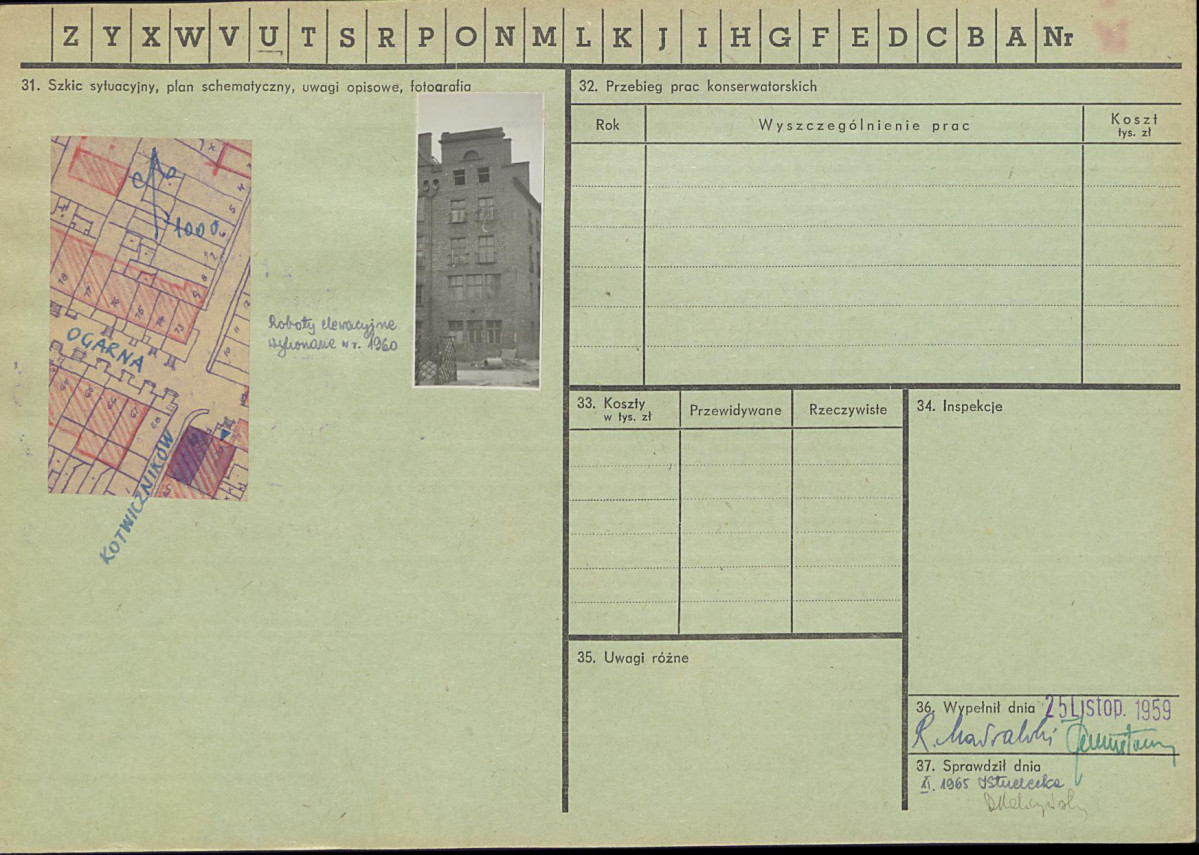 Z Y X W V U T S R P O N M L K J I H G F E D C B A Nr
31. Szkic sytuacyjny, plan schematyczny, uwagi opisowe, fotografia
1000
OGARNA
KOTWICZNIKÓW
Roboty elewacyjne
wykonane w r. 1960
32. Przebieg prac konserwatorskich
Rok
Wyszczególnienie prac
Koszt
tys. zł
33. Koszty
w tys. zł
Przewidywane
Rzeczywiste
34. Inspekcje
35. Uwagi różne
36. Wypełnił dnia 25 Listop. 1959
R.
37. Sprawdził dnia
XI. 1965